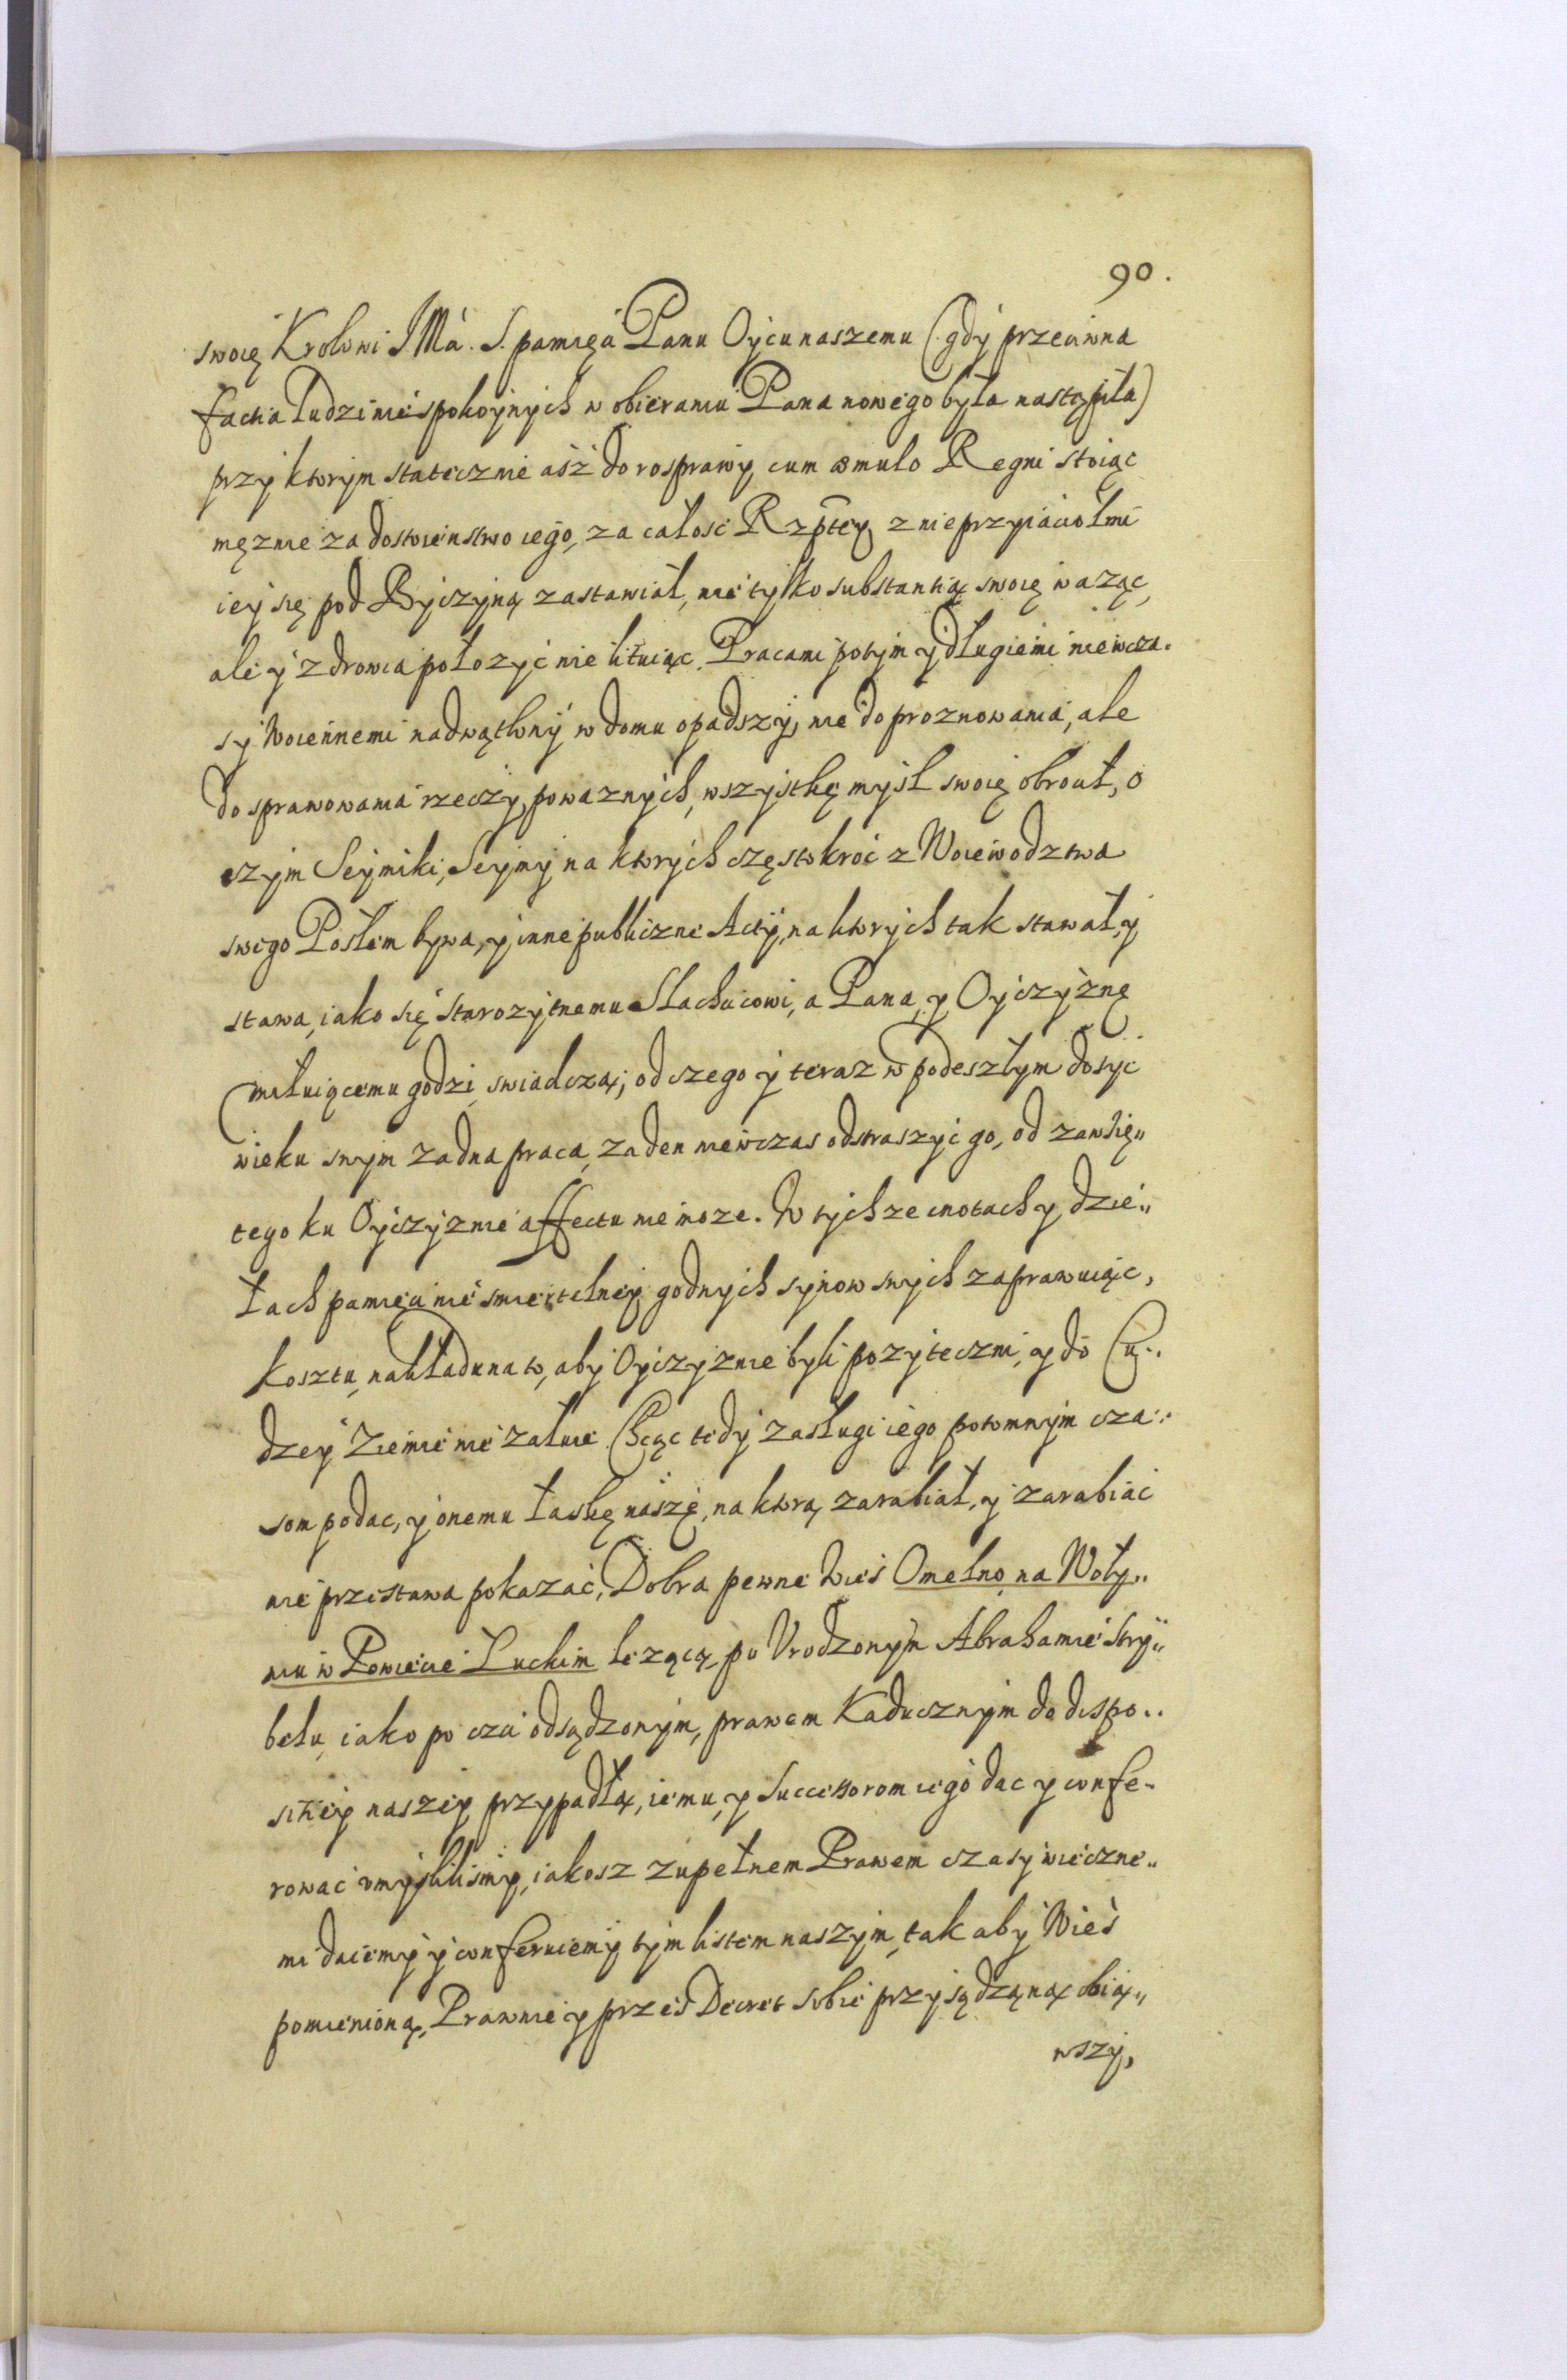 90.
swoię Krolowi JMći. S. pamięći Panu Oycu naszemu (gdy przeciwna
factia ludzi niespokoynych w obieraniu Pana nowego była nastąpiła)
przy ktorym statecznie asz do rosprawy cum æmulo Regni stoiąc
męznie za dostoienstwo iego, za całosc Rzptey z nieprzyiaciołmi
iey się pod Byczyną zastawiał, nie tylko substantią swoię waząc,
ale y zdrowia połozyć nie lituiąc. Pracami potym y długiemi niewcza-
sy Woiennemi nadwątlony w domu opadszy, nie do proznowania, ale
do sprawowania rzeczy powaznych, wszystkę mysl swoię obroćił, o
czym Seymiki, Seymy na ktorych częstokroć z Woiewodztwa
swego Posłem bywa, y inne publiczne Acty, na ktorych tak stawał, y
stawa, iako się starozytnemu Slachcicowi, a Pana, y Oyczyznę
miłuiącemu godzi, swiadczą; od czego y teraz w podeszłym dosyć
wieku swym zadna praca, zaden niewczas odstraszyć go, od zawzię„
tego ku Oyczyznie affectu nie moze. W tychze cnotach y dzie„
łach pamięci niesmiertelney godnych synow swych zaprawuiąc,
kosztu, nakładu na to, aby Oyczyznie byli pozyteczni, y do Cu„
dzey Ziemie nie załuie. Chcąc tedy zasługi iego potomnym cza„
som podac, y onemu łaskę naszę, na ktorą zarabiał, y zarabiać
nie przestawa pokazać, Dobra pewne Wieś Omelno na Woły„
niu w Powiecie Luckim lezącą, po Vrodzonym Abrahamie Stry„
belu, iako po czci odsądzonym, prawem Kaducznym do dispo„
sitiey naszey przypadłą, iemu, y Successorom iego dac y confe-
rowac vmyslilismy, iakosz zupełnem Prawem czasy wieczne„
mi daiemy y conferuiemy tym listem naszym, tak aby Wieś
pomienioną, Prawnie y przes Decret sobie przysądzoną obią„
wszy,